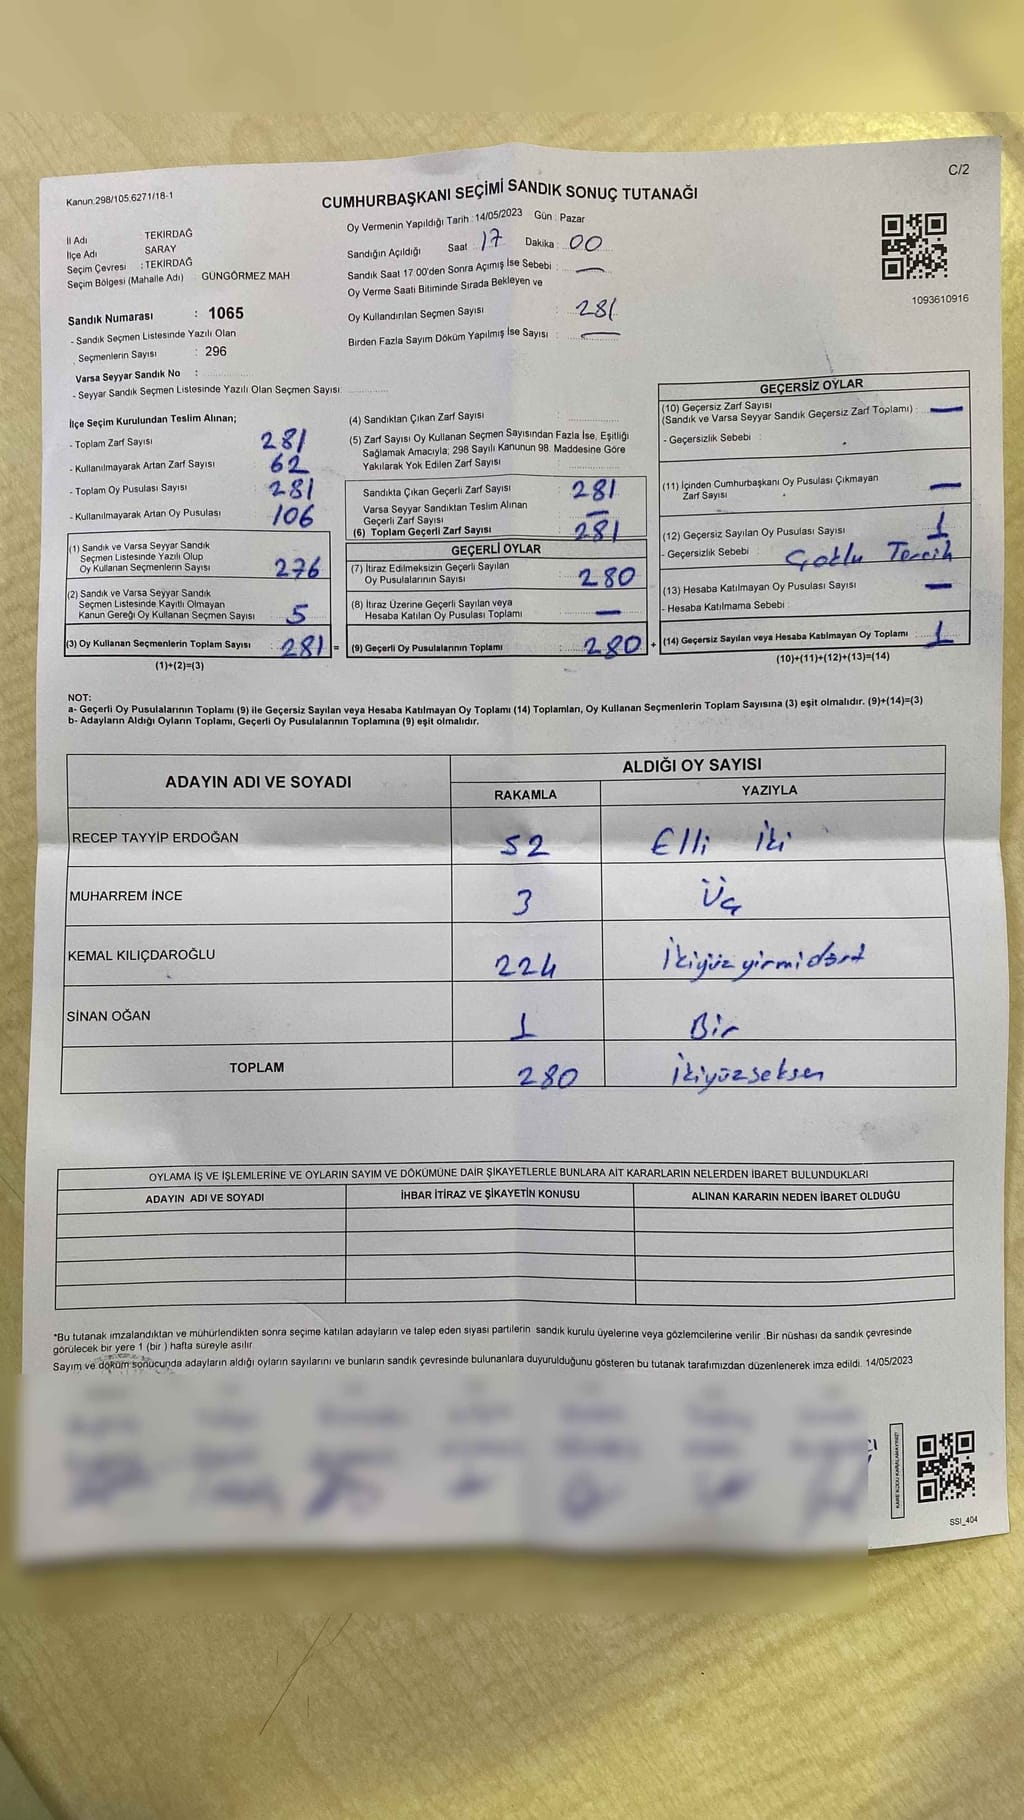 Kanun.298/105.6271/18-1
C/2
CUMHURBAŞKANI SEÇİMİ SANDIK SONUÇ TUTANAĞI
İl Adı TEKİRDAĞ
İlçe Adı SARAY
Seçim Çevresi : TEKİRDAĞ
Seçim Bölgesi (Mahalle Adı) GÜNGÖRMEZ MAH
Oy Vermenin Yapıldığı Tarih : 14/05/2023 Gün : Pazar
Sandığın Açıldığı Saat 17 Dakika : 00
Sandık Saat 17 00'den Sonra Açımış İse Sebebi : —
Oy Verme Saati Bitiminde Sırada Bekleyen ve
Oy Kullandırılan Seçmen Sayısı : 281
Birden Fazla Sayım Döküm Yapılmış İse Sayısı : —
1093610916
Sandık Numarası : 1065
- Sandık Seçmen Listesinde Yazılı Olan
Seçmenlerin Sayısı : 296
Varsa Seyyar Sandık No :
- Seyyar Sandık Seçmen Listesinde Yazılı Olan Seçmen Sayısı:
İlçe Seçim Kurulundan Teslim Alınan;
- Toplam Zarf Sayısı 281
- Kullanılmayarak Artan Zarf Sayısı 62
- Toplam Oy Pusulası Sayısı 281
- Kullanılmayarak Artan Oy Pusulası 106
(1) Sandık ve Varsa Seyyar Sandık
Seçmen Listesinde Yazılı Olup
Oy Kullanan Seçmenlerin Sayısı 276
(2) Sandık ve Varsa Seyyar Sandık
Seçmen Listesinde Kayıtlı Olmayan
Kanun Gereği Oy Kullanan Seçmen Sayısı 5
(3) Oy Kullanan Seçmenlerin Toplam Sayısı 281 =
(1)+(2)=(3)
(4) Sandıktan Çıkan Zarf Sayısı
(5) Zarf Sayısı Oy Kullanan Seçmen Sayısından Fazla İse, Eşitliği
Sağlamak Amacıyla; 298 Sayılı Kanunun 98. Maddesine Göre
Yakılarak Yok Edilen Zarf Sayısı
Sandıkta Çıkan Geçerli Zarf Sayısı 281
Varsa Seyyar Sandıktan Teslim Alınan
Geçerli Zarf Sayısı —
(6) Toplam Geçerli Zarf Sayısı 281
GEÇERLİ OYLAR
(7) İtiraz Edilmeksizin Geçerli Sayılan
Oy Pusulalarının Sayısı 280
(8) İtiraz Üzerine Geçerli Sayılan veya
Hesaba Katılan Oy Pusulası Toplamı —
(9) Geçerli Oy Pusulalarının Toplamı : 280 +
GEÇERSİZ OYLAR
(10) Geçersiz Zarf Sayısı
(Sandık ve Varsa Seyyar Sandık Geçersiz Zarf Toplamı) : —
- Geçersizlik Sebebi :
(11) İçinden Cumhurbaşkanı Oy Pusulası Çıkmayan
Zarf Sayısı —
(12) Geçersiz Sayılan Oy Pusulası Sayısı 1
- Geçersizlik Sebebi : Çoklu Tercih
(13) Hesaba Katılmayan Oy Pusulası Sayısı —
- Hesaba Katılmama Sebebi :
(14) Geçersiz Sayılan veya Hesaba Katılmayan Oy Toplamı 1
(10)+(11)+(12)+(13)=(14)
NOT:
a- Geçerli Oy Pusulalarının Toplamı (9) ile Geçersiz Sayılan veya Hesaba Katılmayan Oy Toplamı (14) Toplamları, Oy Kullanan Seçmenlerin Toplam Sayısına (3) eşit olmalıdır. (9)+(14)=(3)
b- Adayların Aldığı Oyların Toplamı, Geçerli Oy Pusulalarının Toplamına (9) eşit olmalıdır.
ADAYIN ADI VE SOYADI
ALDIĞI OY SAYISI
RAKAMLA YAZIYLA
RECEP TAYYİP ERDOĞAN 52 Elli İki
MUHARREM İNCE 3 Üç
KEMAL KILIÇDAROĞLU 224 İkiyüz yirmi dört
SİNAN OĞAN 1 Bir
TOPLAM 280 İkiyüzseksen
OYLAMA İŞ VE İŞLEMLERİNE VE OYLARIN SAYIM VE DÖKÜMÜNE DAİR ŞİKAYETLERLE BUNLARA AİT KARARLARIN NELERDEN İBARET BULUNDUKLARI
ADAYIN ADI VE SOYADI İHBAR İTİRAZ VE ŞİKAYETİN KONUSU ALINAN KARARIN NEDEN İBARET OLDUĞU
*Bu tutanak imzalandıktan ve mühürlendikten sonra seçime katılan adayların ve talep eden siyasi partilerin sandık kurulu üyelerine veya gözlemcilerine verilir .Bir nüshası da sandık çevresinde
görülecek bir yere 1 (bir ) hafta süreyle asılır
Sayım ve döküm sonucunda adayların aldığı oyların sayılarını ve bunların sandık çevresinde bulunanlara duyurulduğunu gösteren bu tutanak tarafımızdan düzenlenerek imza edildi. 14/05/2023
KARE KODU KARALAMAYINIZ!
SSI_404